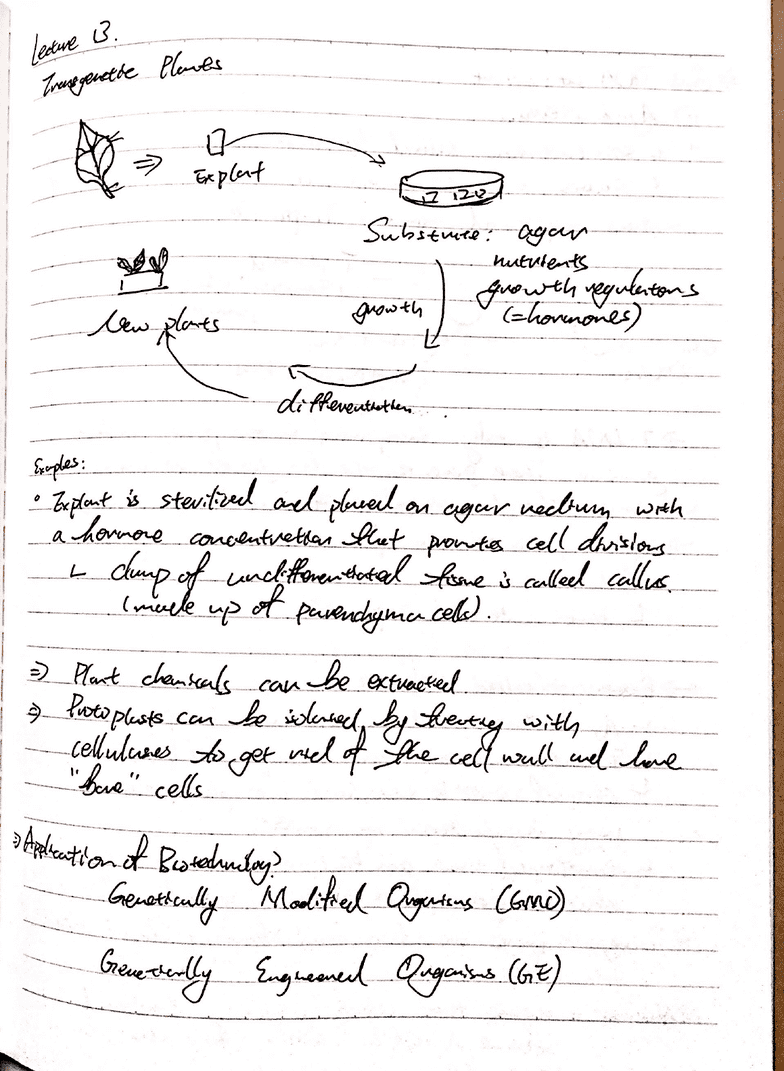 Lecture 13.
Transgenetic Plants
Explant
Substrate: agar
nutrients
growth regulators
(=hormones)
growth
New plants
differentiation
Examples:
° Explant is sterilized and placed on agar medium with
a hormone concentration that promotes cell divisions
L clump of undifferentiated tissue is called callus.
(made up of parenchyma cells).
⇒ Plant chemicals can be extracted
⇒ Protoplasts can be isolated by treating with
cellulases to get rid of the cell wall and have
"bare" cells
⇒ Application of Biotechnology?
Genetically Modified Organisms (GMO)
Genetically Engineered Organisms (GE)